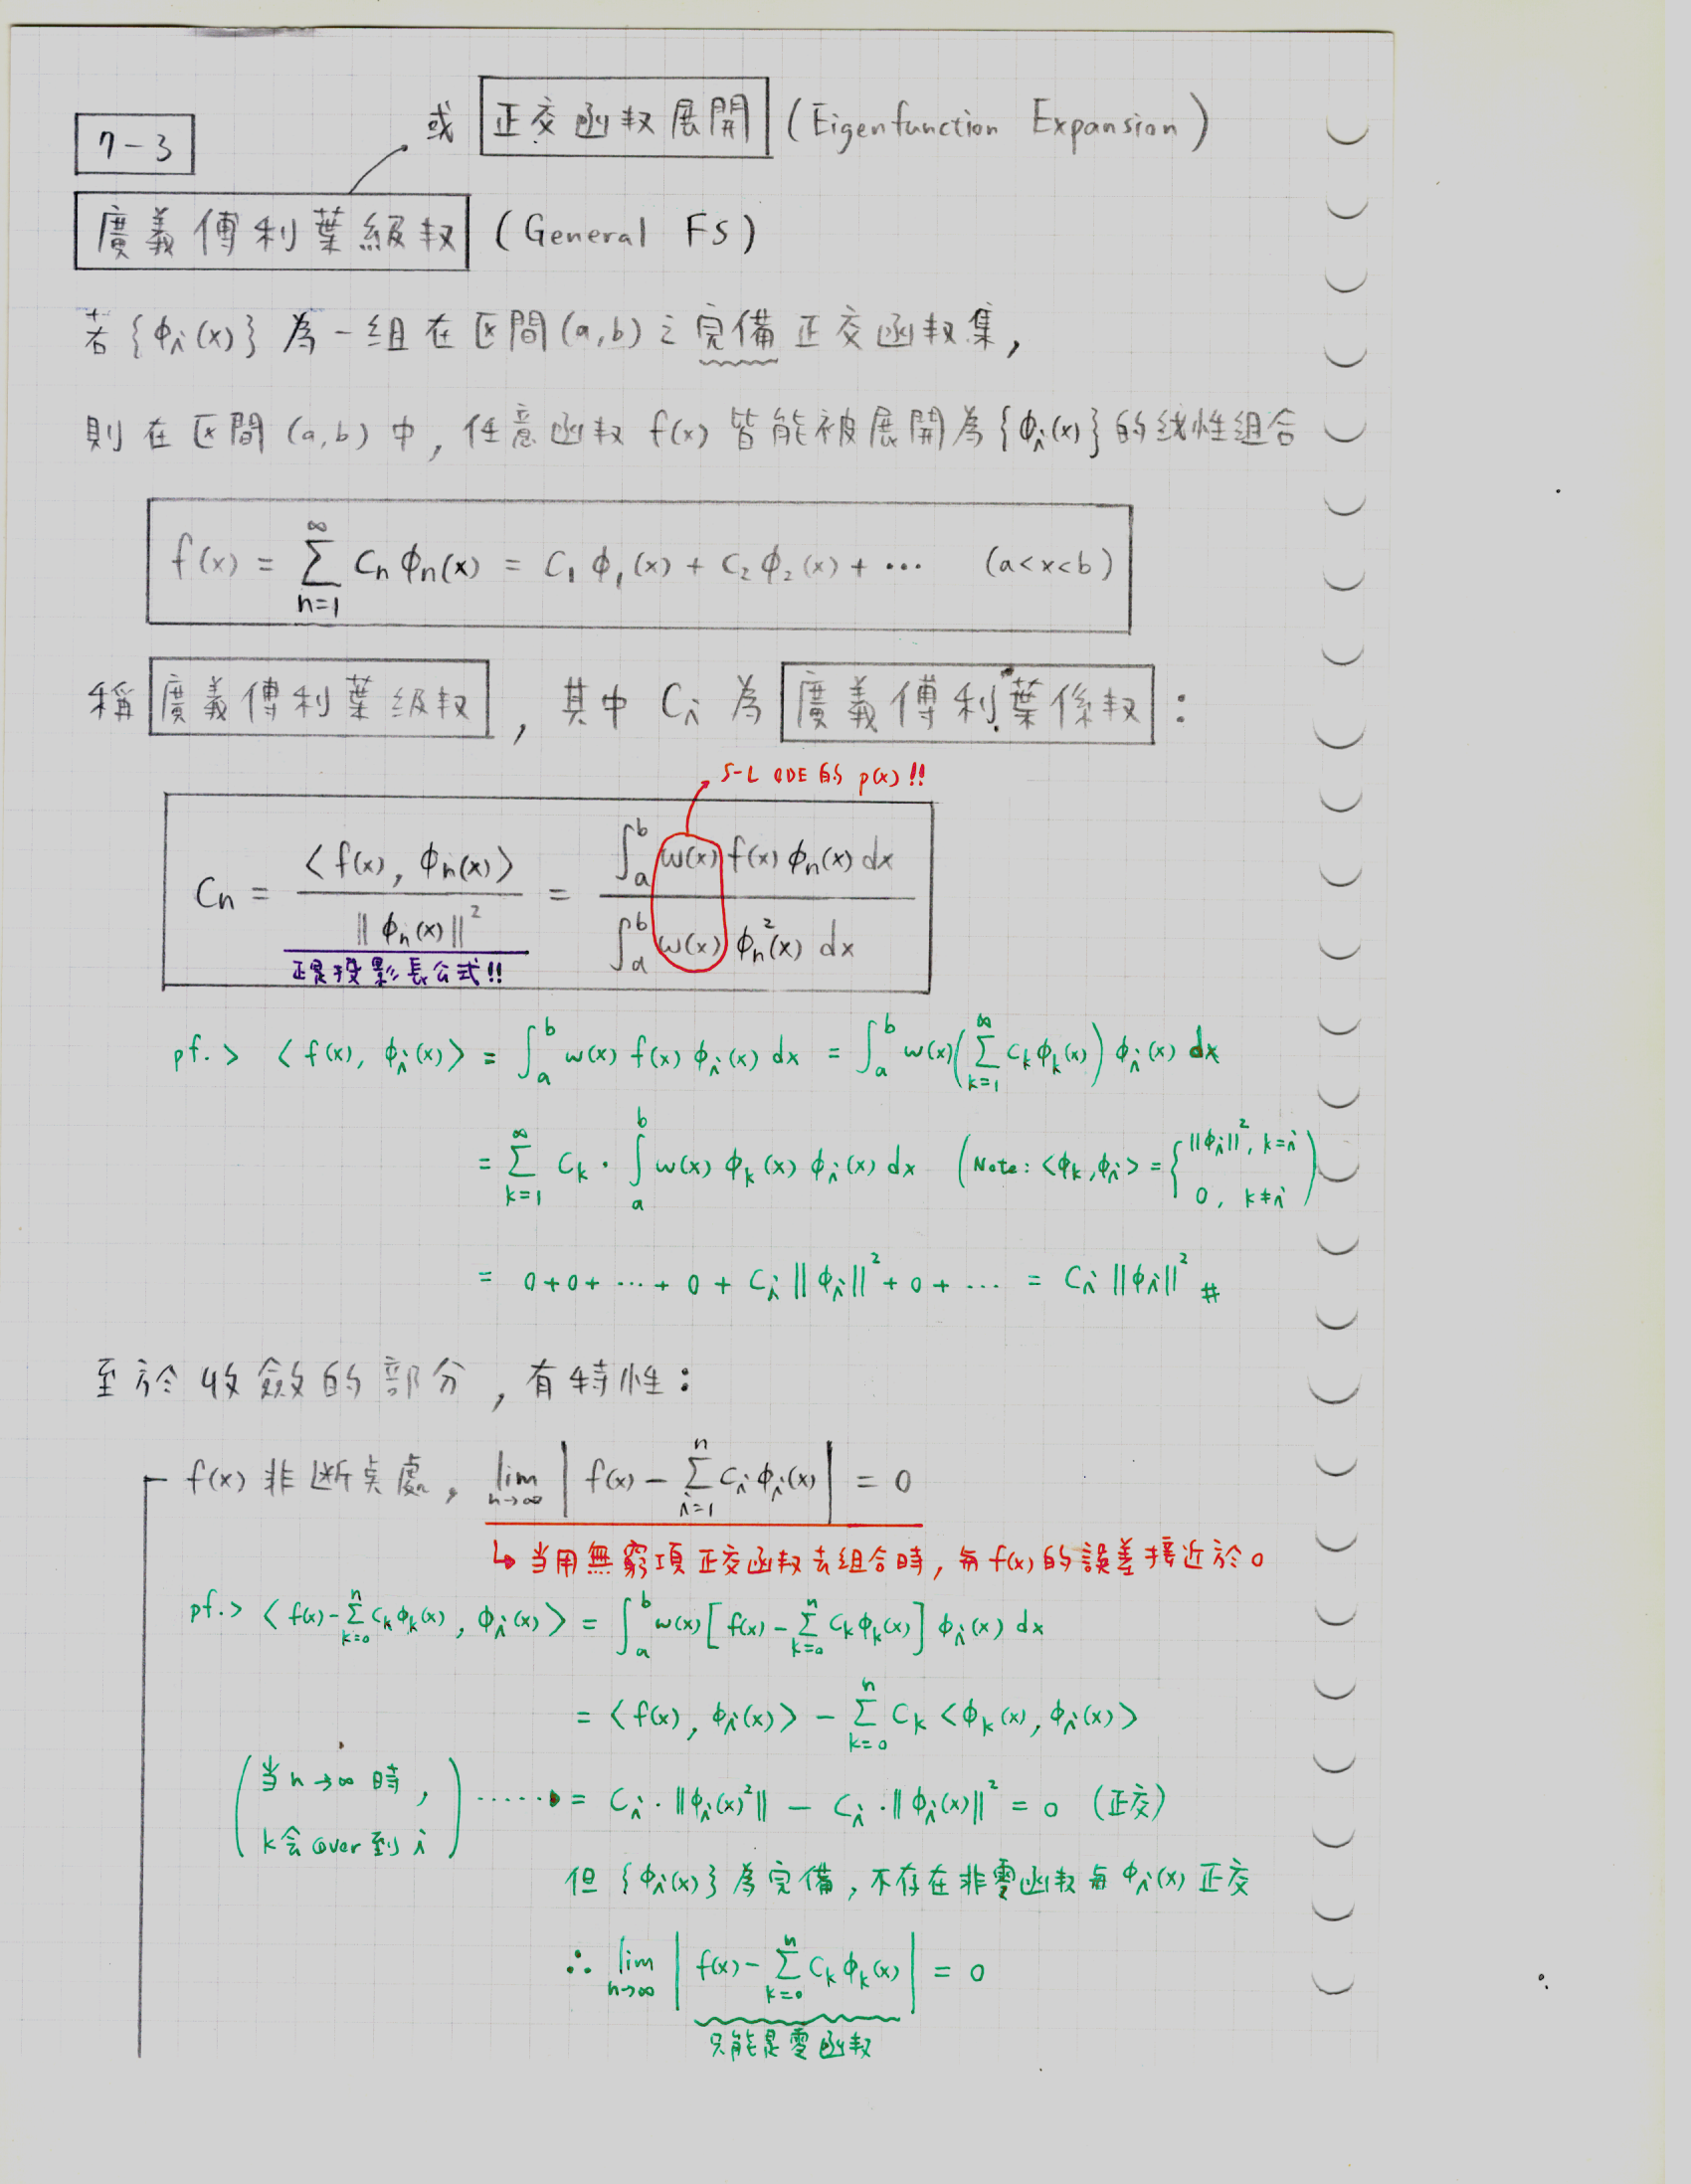 7-3
或 正交函数展開 (Eigenfunction Expansion)
廣義傅利葉級数 (General FS)
若{ϕi(x)}為一組在区間(a,b)之完備正交函数集,
則在区間(a,b)中,任意函数f(x)皆能被展開為{ϕi(x)}的线性組合
f(x) = ∑_{n=1}^{∞} Cn ϕn(x) = C1 ϕ1(x) + C2 ϕ2(x) + ⋯ (a<x<b)
稱 廣義傅利葉级数 , 其中 Ci 為 廣義傅利葉係数 :
S-L ODE的 p(x)!!
Cn = <f(x), ϕn(x)> / ||ϕn(x)||² = ∫_a^b w(x) f(x) ϕn(x) dx / ∫_a^b w(x) ϕn²(x) dx
正是投影長公式!!
pf.> <f(x), ϕi(x)> = ∫_a^b w(x) f(x) ϕi(x) dx = ∫_a^b w(x)(∑_{k=1}^{∞} Ckϕk(x)) ϕi(x) dx
= ∑_{k=1}^{∞} Ck · ∫_a^b w(x) ϕk(x) ϕi(x) dx (Note: <ϕk,ϕi> = { ||ϕi||², k=i
0, k≠i )
= 0+0+ ⋯ + 0 + Ci ||ϕi||² + 0 + ⋯ = Ci ||ϕi||² #
至於收斂的部分,有特性:
f(x)非断点處, lim_{n→∞} | f(x) - ∑_{i=1}^{n} Ci ϕi(x) | = 0
↳ 当用無窮項正交函数去組合時, 與f(x)的誤差接近於0
pf.> <f(x)-∑_{k=0}^{n} Ckϕk(x), ϕi(x)> = ∫_a^b w(x)[f(x)-∑_{k=0}^{n} Ckϕk(x)] ϕi(x) dx
= <f(x), ϕi(x)> - ∑_{k=0}^{n} Ck <ϕk(x), ϕi(x)>
(当n→∞時,
k会over到i) ⋯⋯ = Ci·||ϕi(x)²|| - Ci·||ϕi(x)||² = 0 (正交)
但{ϕi(x)}為完備,不存在非零函数與ϕi(x)正交
∴ lim_{n→∞} | f(x)-∑_{k=0}^{n} Ck ϕk(x) | = 0
只能是零函数